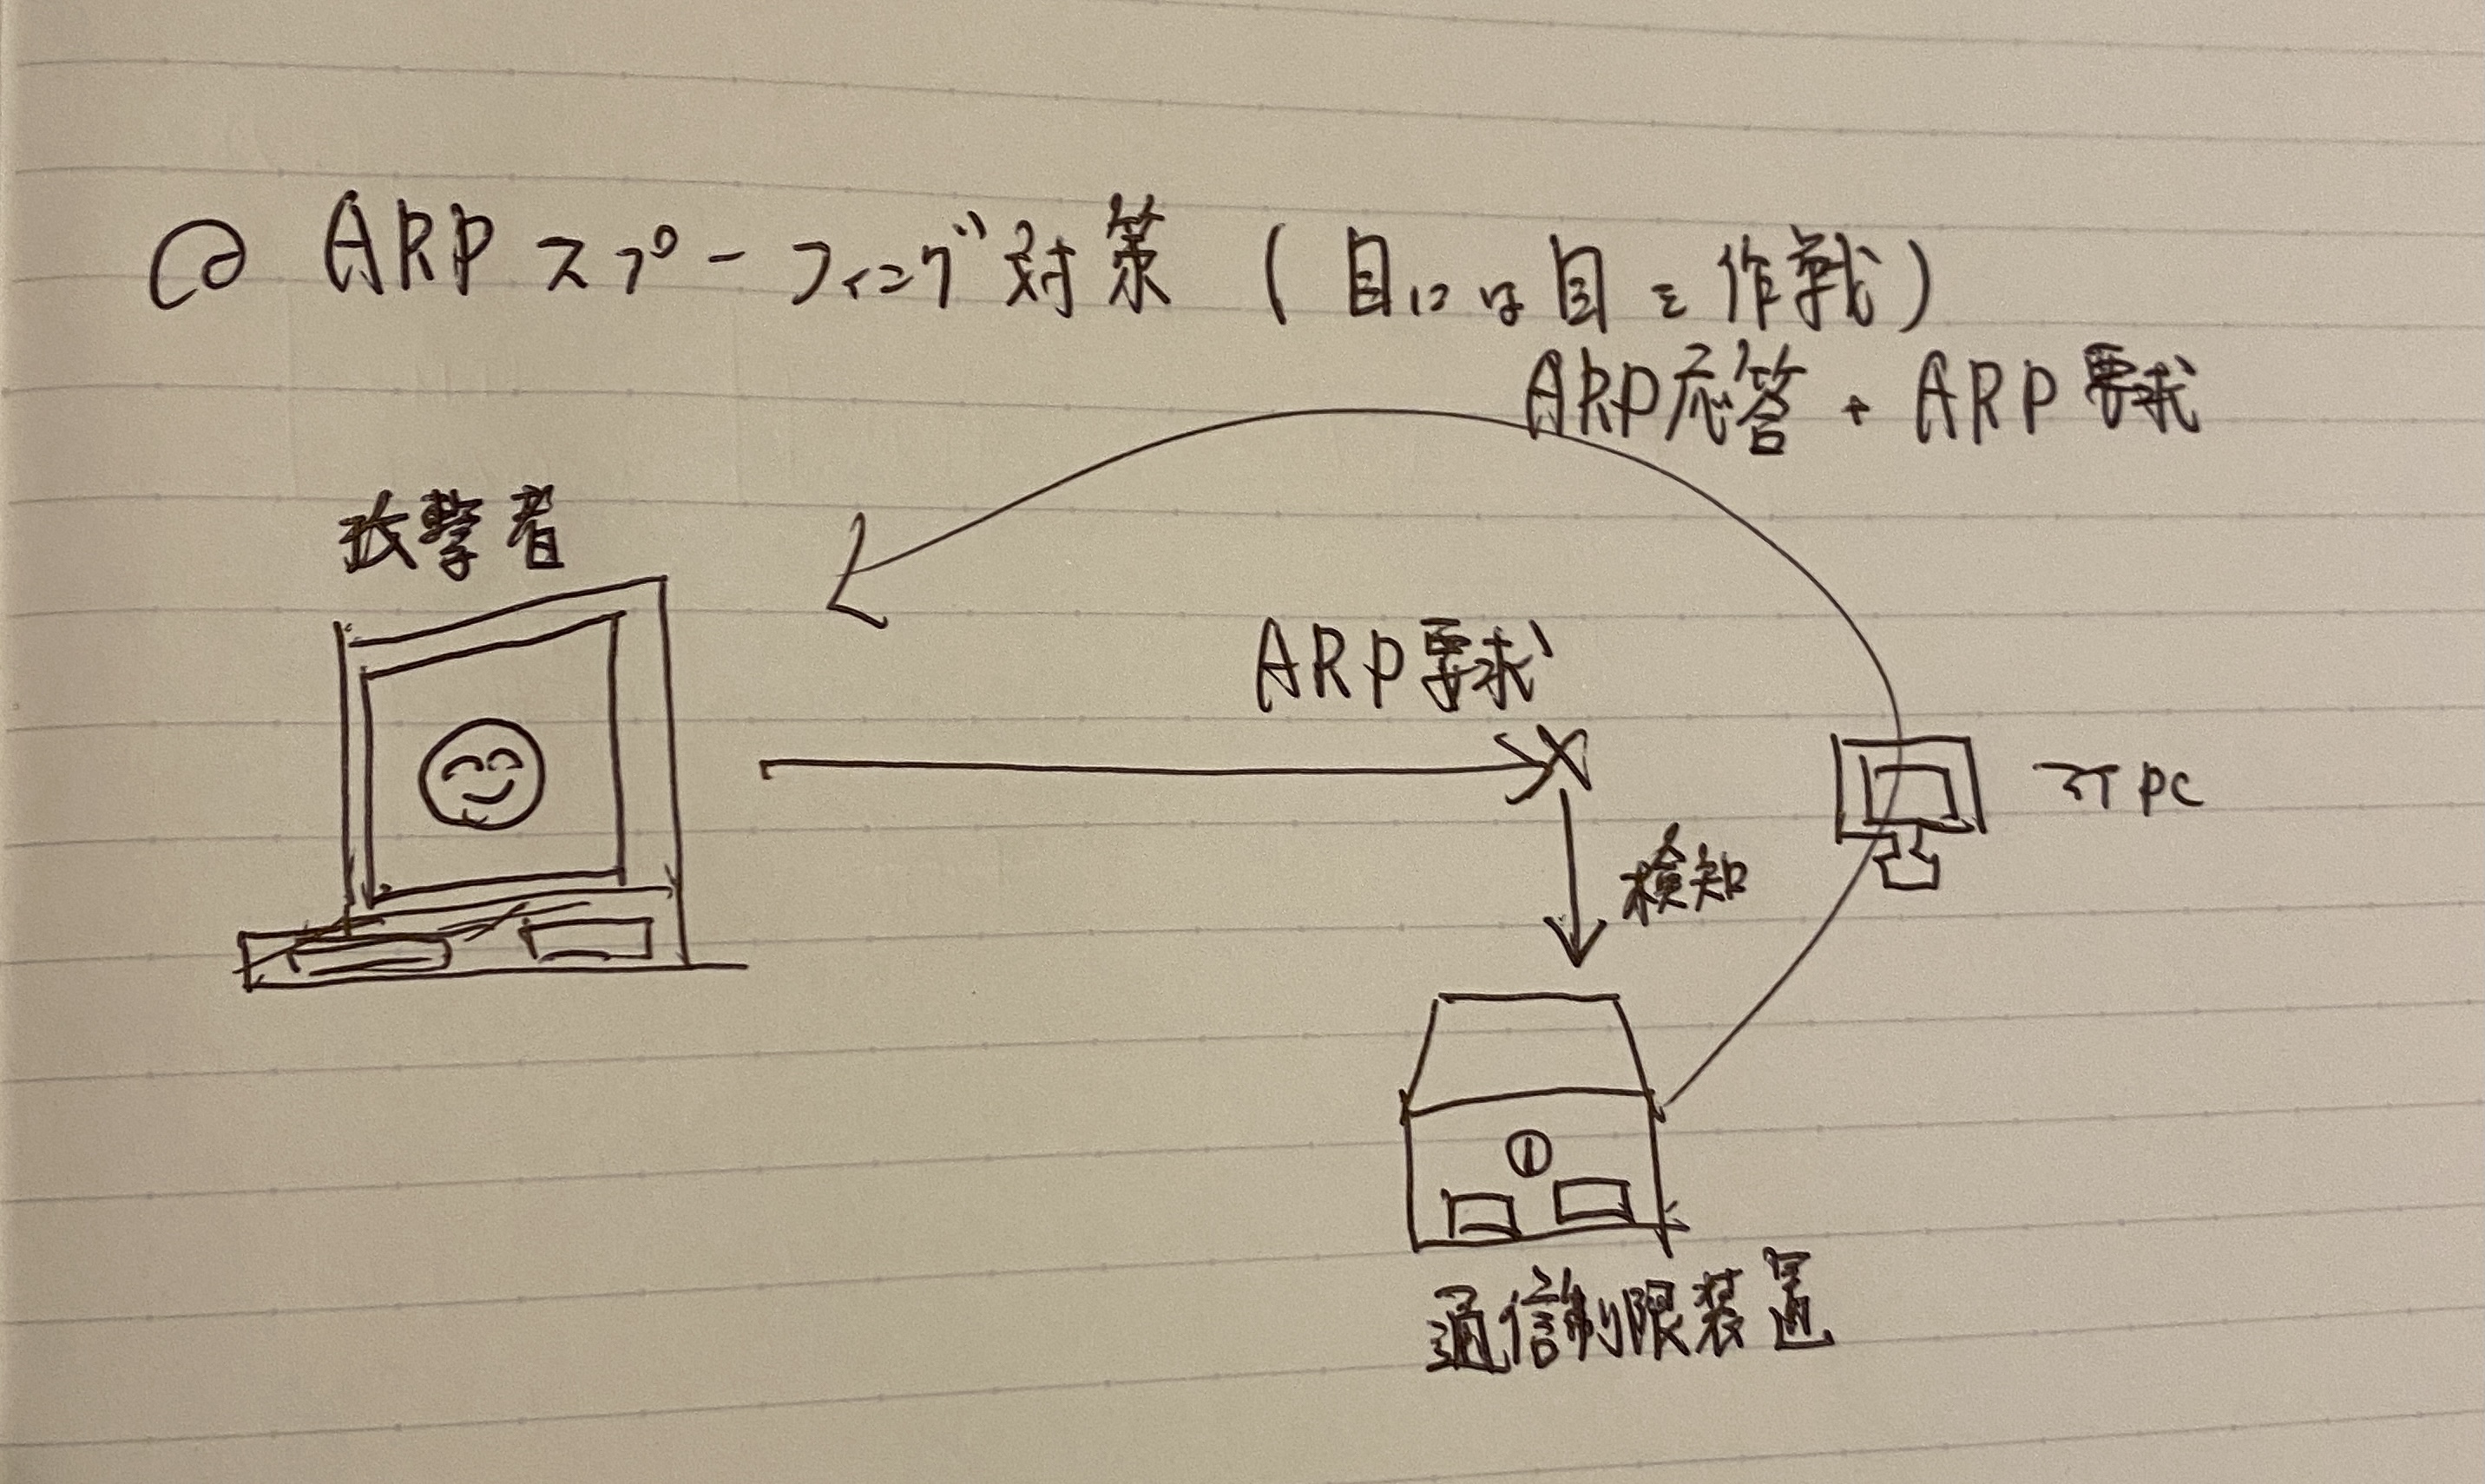 @ ARPスプーフィング対策(目には目を作戦)
ARP応答+ARP要求
攻撃者
ARP要求
PC
検知
通信制限装置